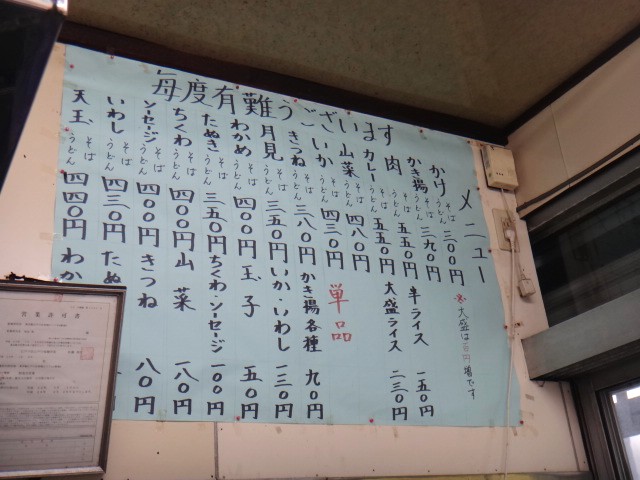 毎度有難うございます
メニュー
かけ そば うどん 三〇〇円
かき揚 そば うどん 三九〇円
肉 そば うどん 五五〇円
カレー そば うどん 五五〇円
山菜 そば うどん 四八〇円
いか そば うどん 四三〇円
きつね そば うどん 三八〇円
月見 そば うどん 三五〇円
わかめ そば うどん 四〇〇円
たぬき そば うどん 三五〇円
ちくわ そば うどん 四〇〇円
ソーセージ そば うどん 四〇〇円
いわし そば うどん 四三〇円
天玉 そば うどん 四四〇円
※大盛は 円増です
半ライス 一五〇円
大盛ライス 二三〇円
単品
かき揚各種 九〇円
いか・いわし 一三〇円
玉子 五〇円
ちくわ・ソーセージ 一〇〇円
山菜 一八〇円
きつね 八〇円
たぬ
わか
営業許可書